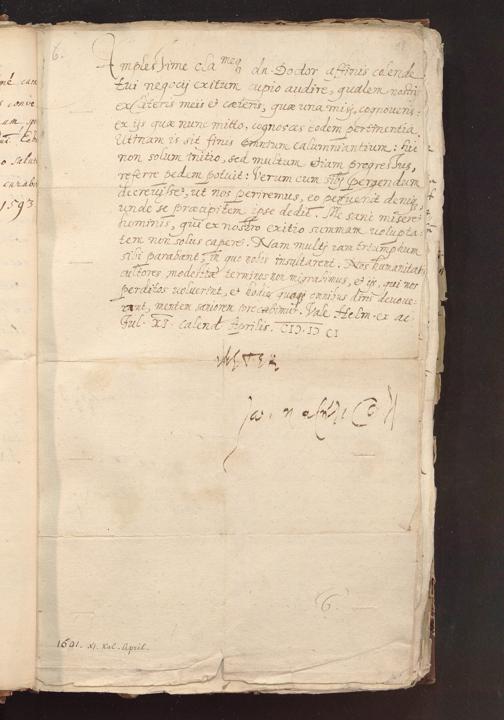 6.
Amplissime clarmeq dn. Doctor affinis colende
tui negocij exitum cupio audire, qualem nostri
ex literis meis et caeteris, quae una misi, cognovens,
ex ijs quae nunc mitto, cognosces eodem pertinentia
Utinam is sit finis omnium calumniantium: hic
non solum initio, sed multum viam progressus,
referre pedem potuit: Verum cum sibi pergendum
decrevisset, ut nos periremus, eo pervenit denique
unde se praecipitem ipse dedit. Me sani miseret
hominis, qui ex nostro exitio summam volupta-
tem non solus capere. Nam multi iam triumphum
sibi parabant, in quo nobis insultarent. Nos humanitatis
cultores, modestiae terminos non migrabimus, et ijs, qui nos
perditos voluerint, et hodie quoque omnibus diris devove-
rant, mentem saniorem precabimur. Vale Helm. ex ac.
Iul. XI. calend Aprilis. CIƆ.IƆ CI
6.
1601. XI. Kal. April.
1593